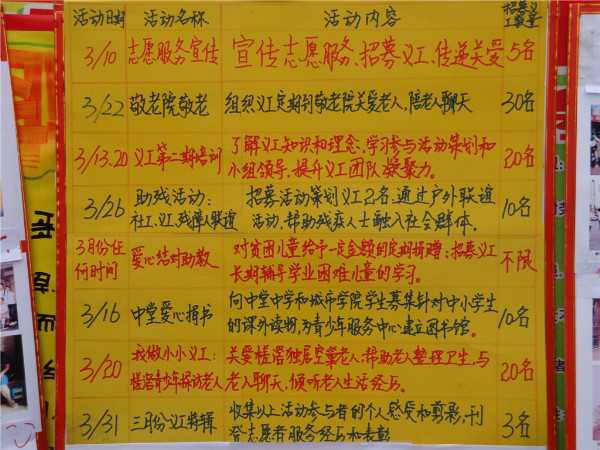 活动日期 活动名称 活动内容 招募义工数量
3/10 志愿服务宣传 宣传志愿服务、招募义工、传递关爱 5名
3/22 敬老院敬老 组织义工定期到敬老院关爱老人,陪老人聊天 30名
3/13.20 义工第二期培训 了解义工知识和理念,学习参与活动策划和
小组领导、提升义工团队凝聚力。 20名
3/26 助残活动:
社工、义工、残障人联谊 招募活动策划义工2名,通过户外联谊
活动,帮助残疾人士融入社会群体。 10名
3月份任
何时间 爱心结对助教 对贫困儿童给予一定金额的定期捐赠;招募义工
长期辅导学业困难儿童的学习。 不限
3/16 中堂爱心捐书 向中堂中学和城市学院学生募集针对中小学生
的课外读物,为青少年服务中心建立图书馆。 10名
3/20 我做小小义工:
槎滘青少年探访老人 关爱槎滘独居空巢老人;帮助老人整理卫生,与
老人聊天,倾听老人生活经历。 20名
3/31 三月份义工特辑 收集以上活动参与者的个人感受和剪影,刊
登志愿者服务经历和表彰 3名